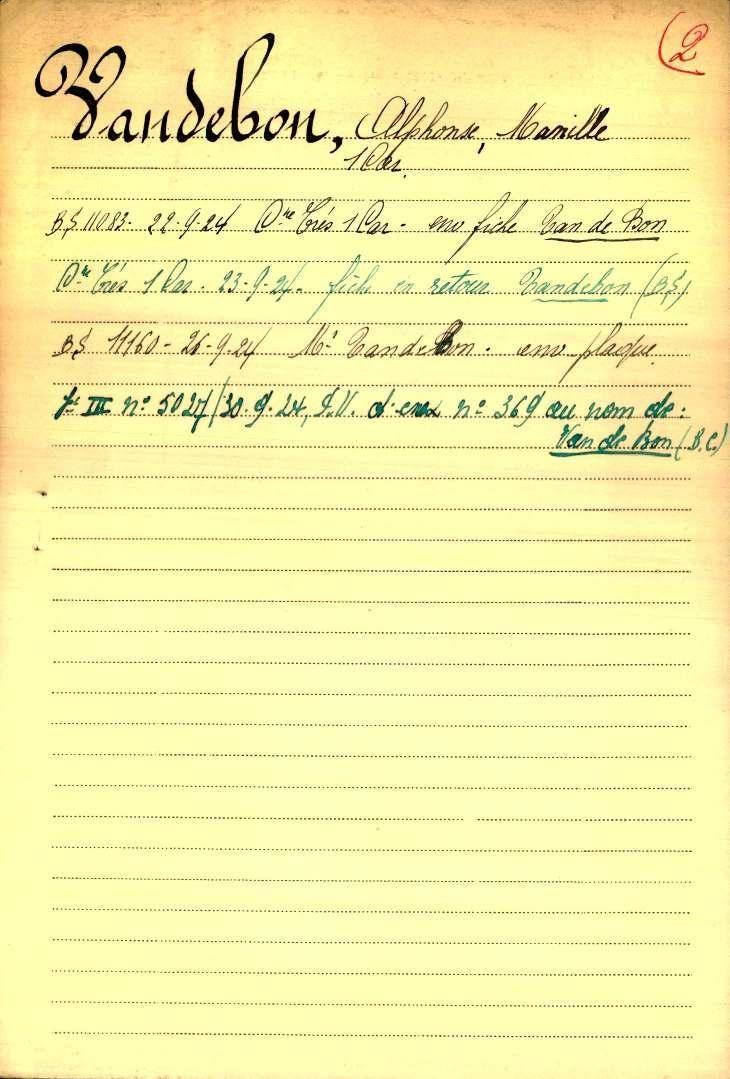 (2
Vandebon, Alphonse, Manille
1 Car.
B.S 11083 - 22-9-24 Dre Trés 1 Car - env fiche Van de Bon
Dre Trés 1 Car - 23-9-24. fiche en retour Vandebon (B.S)
B.S 11160 - 26-9-24 Mr VandeBon - env plaque.
III no 5027/30.9.24, d'enex no 369 au nom de:
Van de Bon (B.C.)